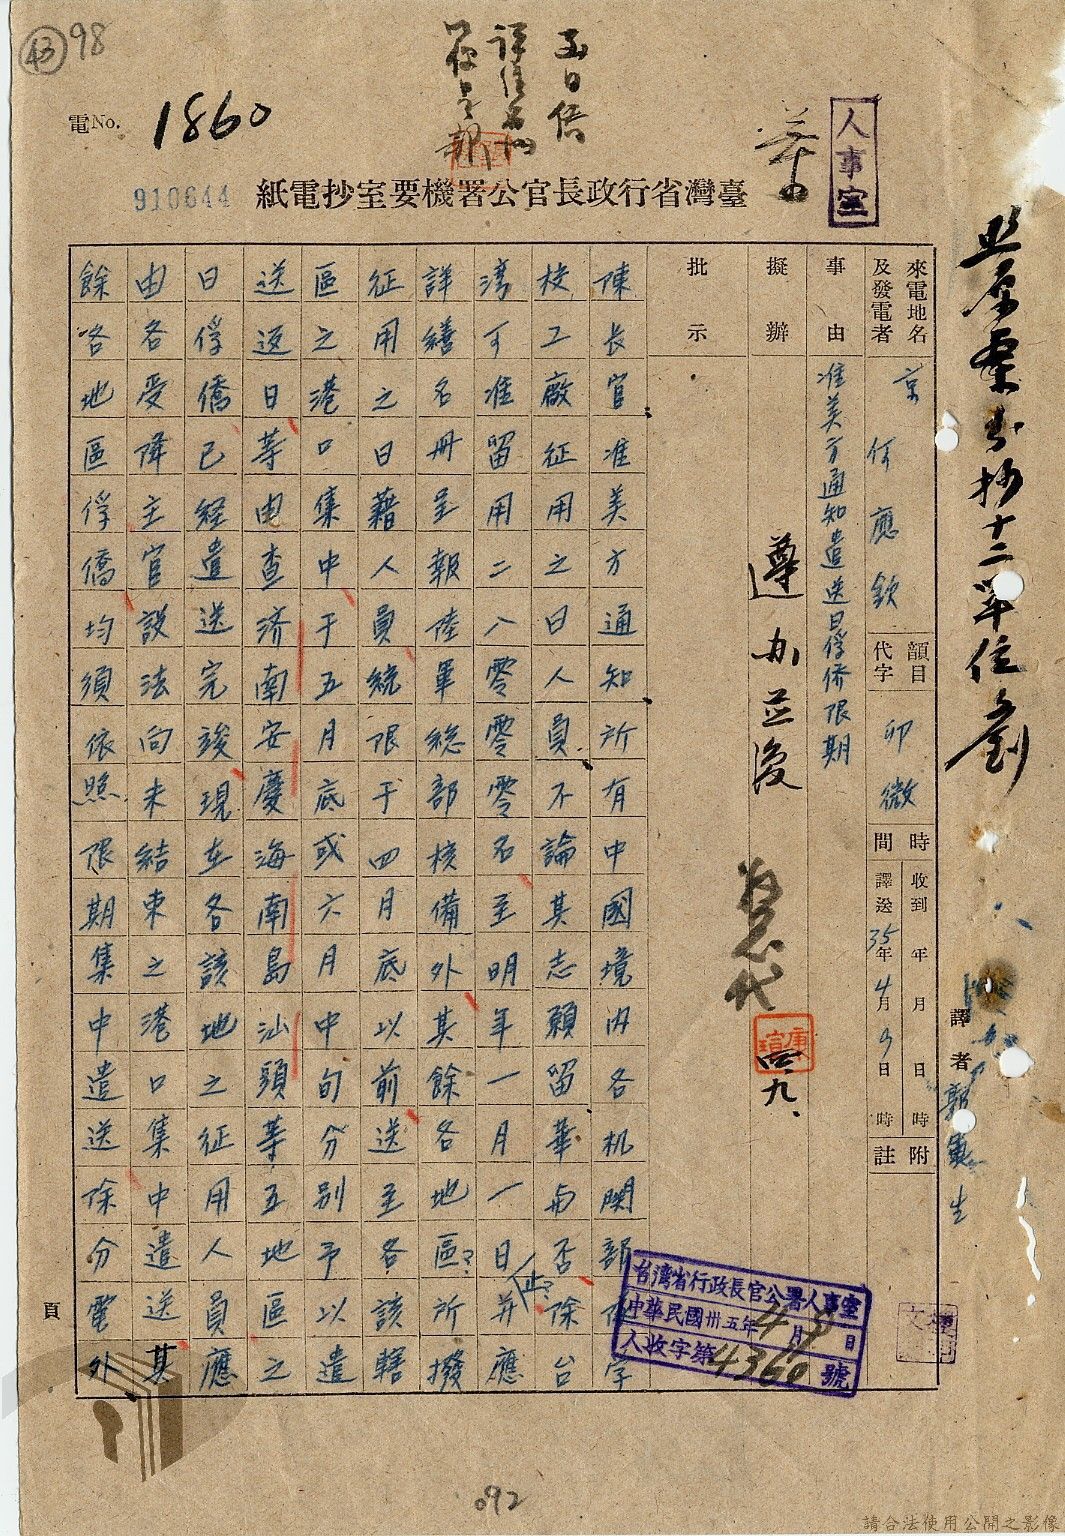 43
98
電No. 1860
910644
人事室
臺灣省行政長官公署機要室抄電紙
照原稟分抄十二單位 劉
來電地名及發電者
京 何應欽
韻目代字
卯微
時間
收到 年 月 日 時
譯送 35年 4月 9日 時
附註
譯者
事由
准美方通知遣送日俘僑限期
擬辦
遵办並復
代
四、九、
批示
陳長官准美方通知所有中國境內各机関部隊学
校工廠征用之日人員不論其志願留華与否除台
湾可准留用二八零零零名至明年一月一日(止?)并應
詳繕名冊呈報陸軍総部核備外其餘各地區?所撥
征用之日藉人員統限于四月底以前送至各該轄
區之港口集中于五月底或六月中旬分別予以遣
送返日等由查济南安慶海南島汕頭等五地區之
日俘僑已経遣送完竣現在各該地之征用人員應
由各受降主官設法向未結束之港口集中遣送其
餘各地區俘僑均須依照限期集中遣送除分電外
台湾省行政長官公署人事室
中華民國卅五年4月9日
人收字第4360號
頁
092
請合法使用公開之影像